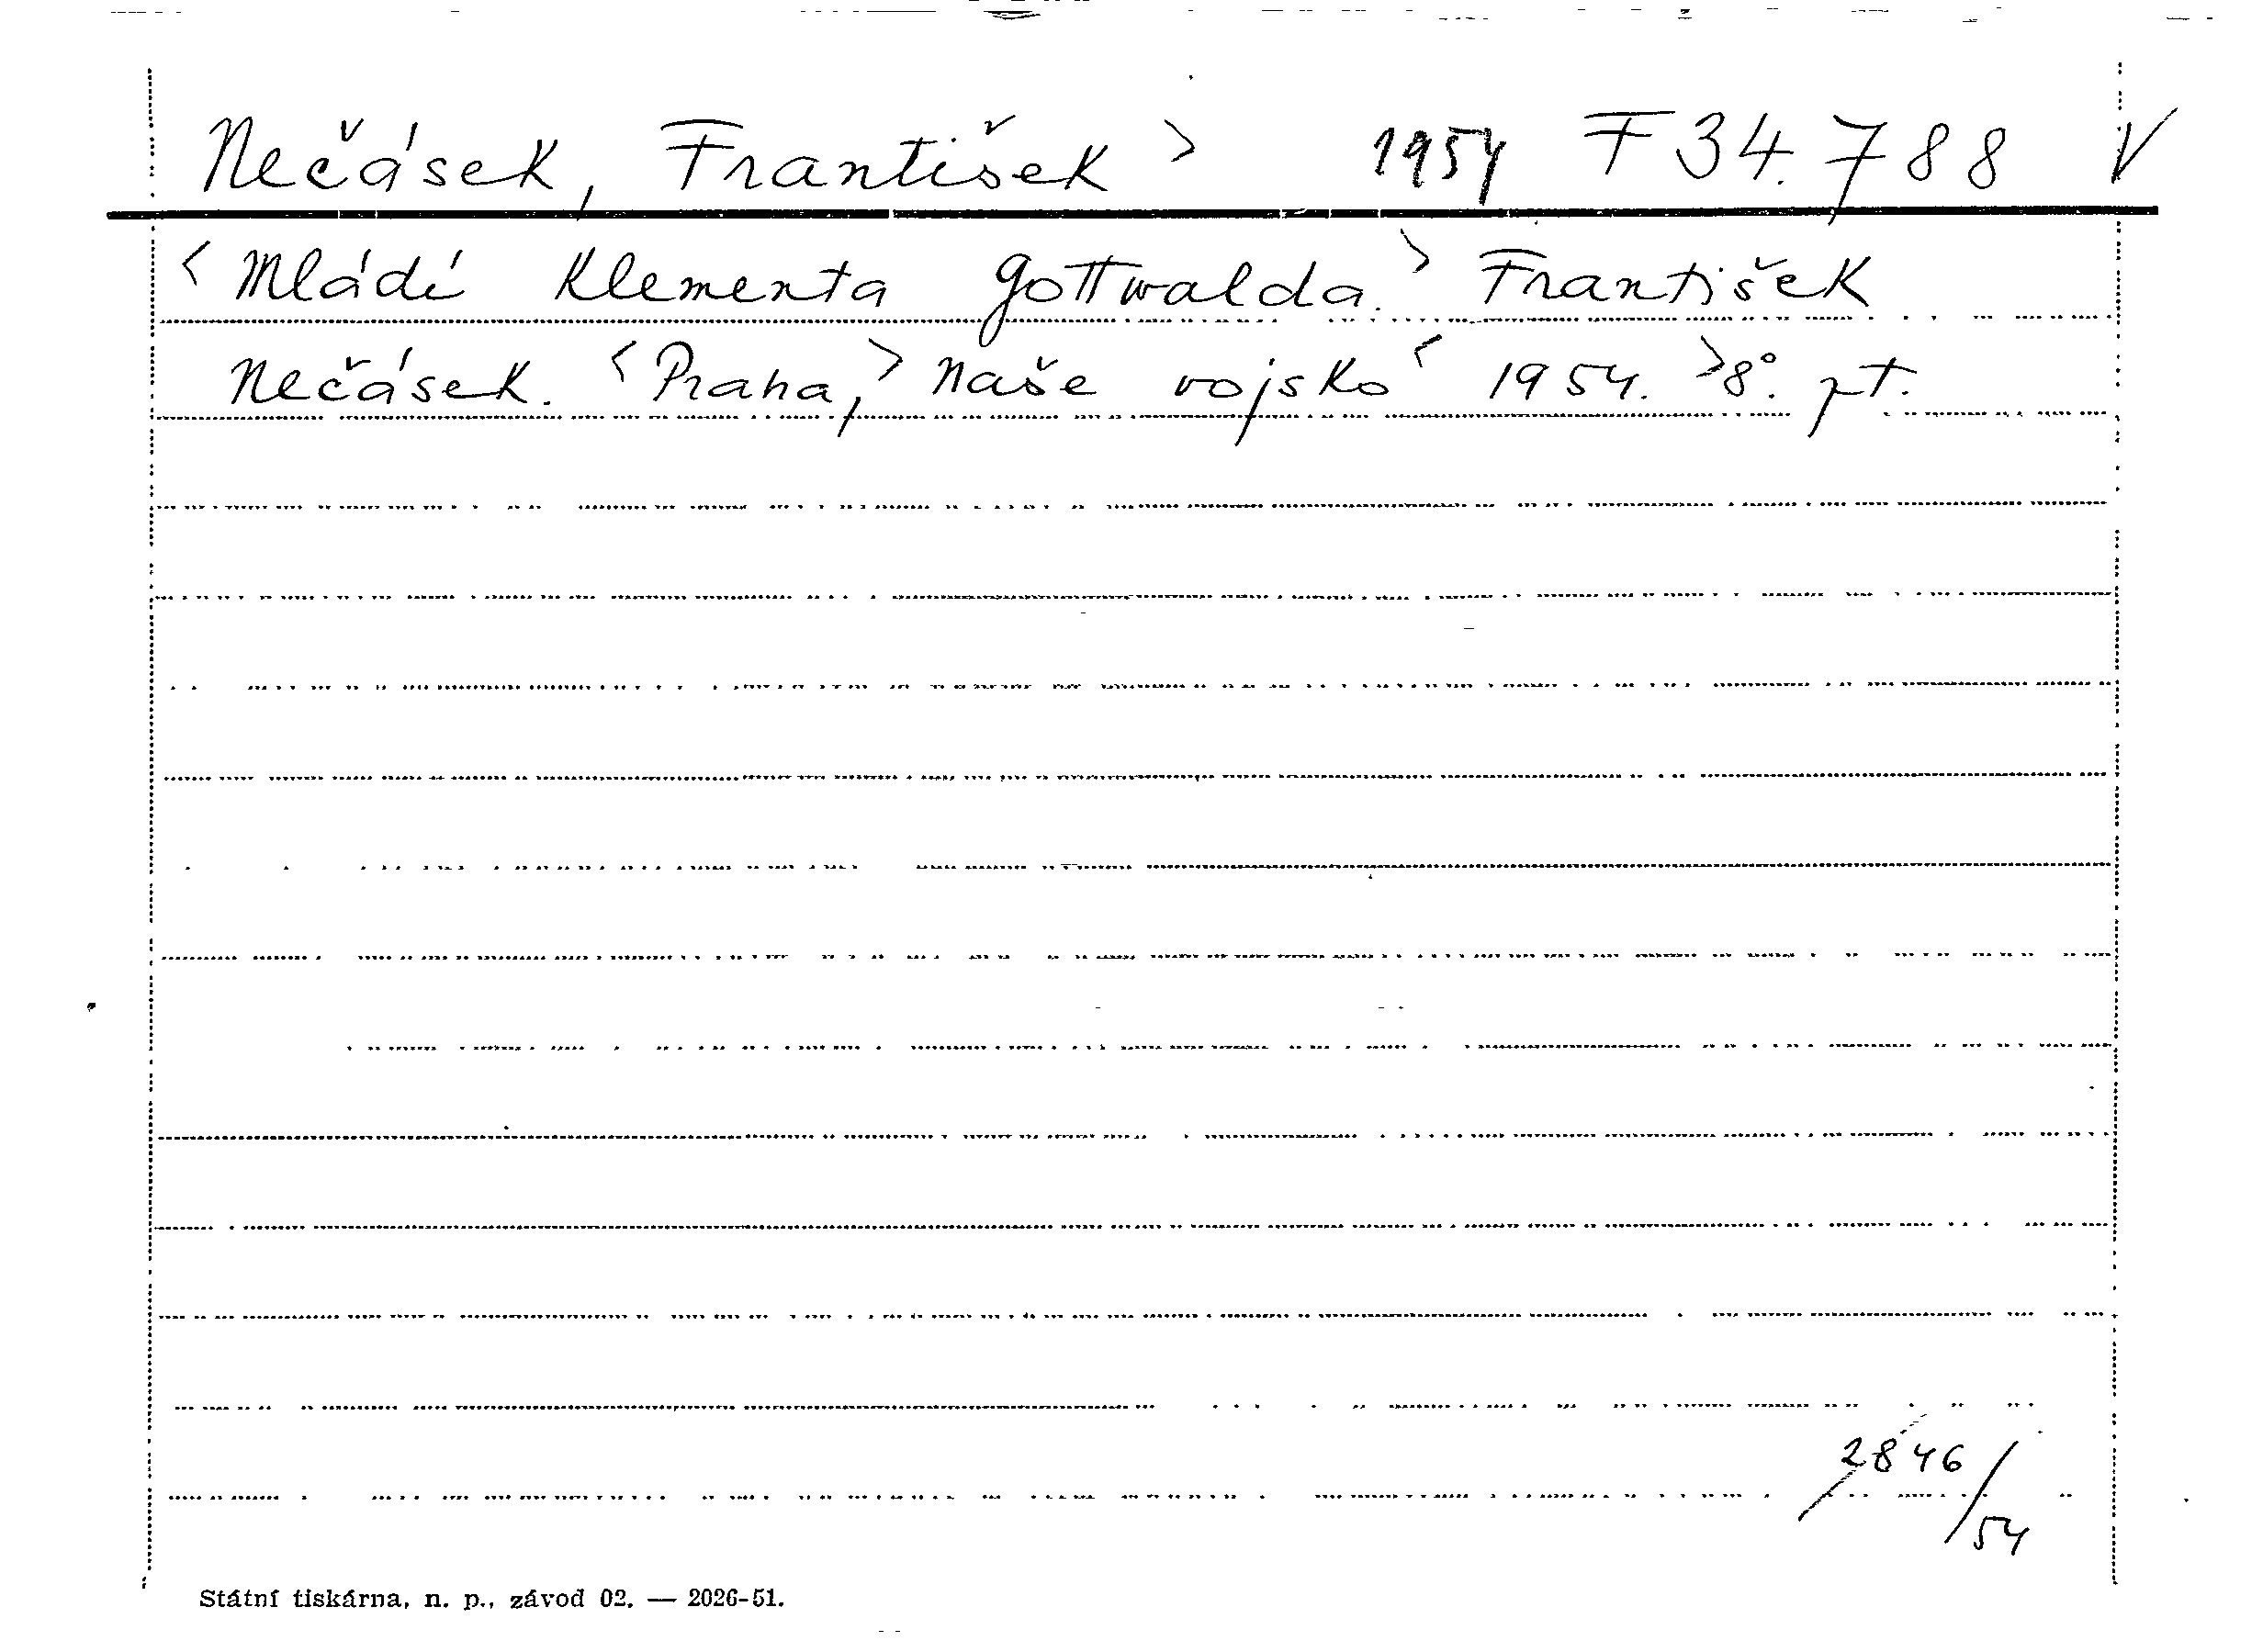 Nečásek, František > 1954 F 34.788 V
< Mládí Klementa Gottwalda. > František
Nečásek. < Praha, > Naše vojsko < 1954. > 8°. pt.
2846/54
Státní tiskárna, n. p., závod 02. — 2026-51.